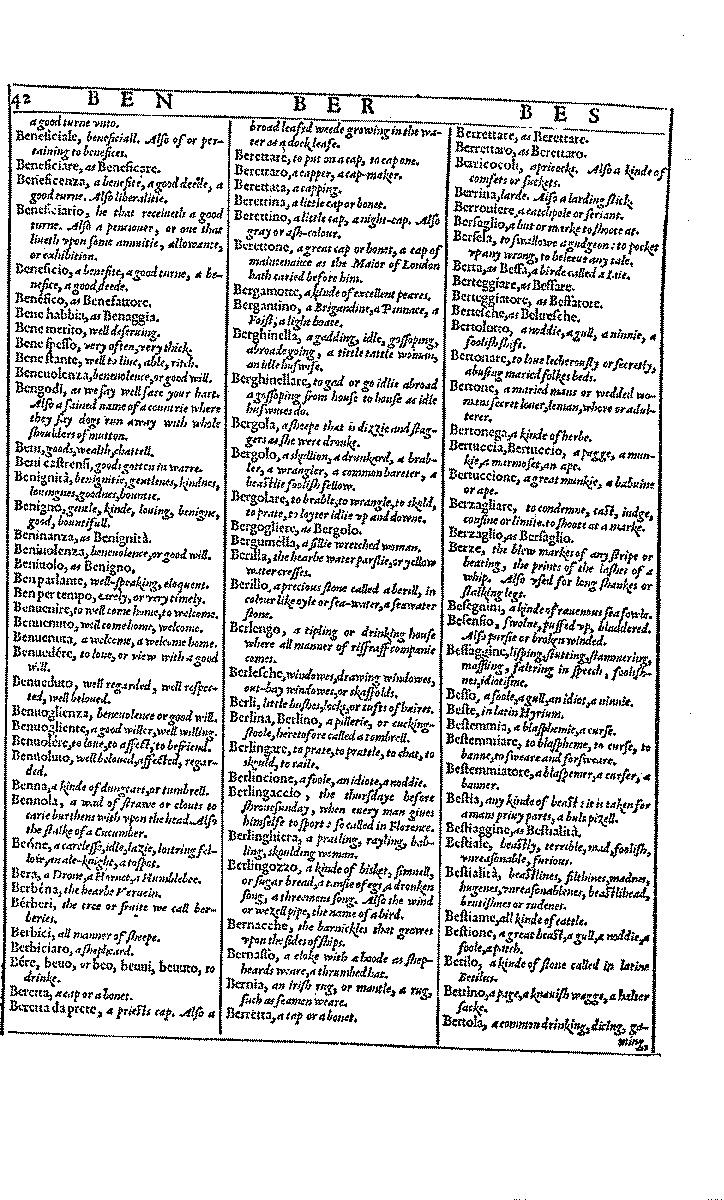 42 BEN BER BES
a good turne vnto.
Beneficiale, beneficiall. Also of or per-
taining to benefices.
Beneficiare, as Beneficare.
Beneficenza, a benefite, a good deede, a
good turne. Also liberalitie.
Beneficiario, he that receiueth a good
turne. Also a pensioner, or one that
liueth vpon some annuitie, allowance,
or exhibition.
Beneficio, a benefite, a good turne, a be-
nefice, a good deede.
Benéfico, as Benefattore.
Bene habbia, as Benaggia.
Bene merito, well deseruing.
Bene spesso, very often, very thick.
Bene stante, well to liue, able, rich.
Beneuolenza, beneuolence, or good will.
Bengodi, as we say well fare your hart.
Also a fained name of a countrie where
they say dogs run away with whole
shoulders of mutton.
Beni, goods, wealth, chattell.
Beni castrensi, goods gotten in warre.
Benignità, benignitie, gentlenes, kindnes,
louingnes, goodnes, bountie.
Benigno, gentle, kinde, louing, benigne,
good, bountifull.
Beninanza, as Benignità.
Beniuolenza, beneuolence, or good will.
Beniuolo, as Benigno.
Ben parlante, well-speaking, eloquent.
Ben per tempo, early, or very timely.
Benuenire, to well come home, to welcome.
Benuenuto, well come home, welcome.
Benuenuta, a welcome, a welcome home.
Benuedére, to loue, or view with a good
will.
Benueduto, well regarded, well respec-
ted, well beloued.
Benuoglienza, beneuolence or good will.
Benuogliente, a good willer, well willing.
Benuolére, to loue, to affect, to befriend.
Benuoluto, well beloued, affected, regar-
ded.
Benna, a kinde of dungcart, or tumbrell.
Bennola, a wad of strawe or clouts to
carie burthens with vpon the head. Also
the stalke of a Cucumber.
Beóne, a carelesse, idle, lazie, loitring fel-
low, an ale-knight, a tospot.
Bera, a Drone, a Hornet, a Humblebee.
Berbéna, the hearbe Veruein.
Bérberi, the tree or fruite we call ber-
beries.
Berbici, all manner of sheepe.
Berbiciaro, a shepheard.
Bére, beuo, or beo, beuui, beuuto, to
drinke.
Beretta, a cap or a bonet.
Beretta da prete, a priests cap. Also a
broad leafed weede growing in the wa-
ter as a dock leafe.
Berettare, to put on a cap, to cap one.
Berettaro, a capper, a cap-maker.
Berettata, a capping.
Berettina, a little cap or bonet.
Berettino, a little cap, a night-cap. Also
gray or ash-colour.
Berettone, a great cap or bonet, a cap of
maintenance as the Maior of London
hath caried before him.
Bergamotte, a kinde of excellent peares.
Bergantino, a Brigandine, a Pinnace, a
Foist, a light boate.
Berghinella, a gadding, idle, gossoping,
abroade going, a tittle tattle woman,
an idle huswife.
Berghinellare, to gad or go idlie abroad
a gossoping from house to house as idle
huswiues do.
Bergola, a sheepe that is dizzie and stag-
gers as she were dronke.
Bergolo, a skullion, a drunkerd, a brab-
ler, a wrangler, a common bareter, a
beastlie foolish fellow.
Bergolare, to brable, to wrangle, to skold,
to prate, to loyter idlie vp and downe.
Bergogliere, as Bergolo.
Bergumella, a sillie wretched woman.
Berilla, the hearbe water parslie, or yellow
water cresses.
Berilio, a precious stone called a berill, in
colour like oyle or sea-water, a seawater
stone.
Berlengo, a tipling or drinking house
where all manner of riffraff companie
comes.
Berlesche, windowes, drawing windowes,
out-bay windowes, or skaffolds.
Berli, little bushes, locks, or tufts of haires.
Berlina, Berlino, a pillerie, or cucking-
stoole, heretofore called a tombrell.
Berlingare, to prate, to prattle, to chat, to
skould, to raile.
Berlincione, a foole, an idiote, a noddie.
Berlingaccio, the thursdaies before
shrouesunday, when euery man giues
himselfe to sport: so called in Florence.
Berlinghiera, a prailing, rayling, bab-
ling, skoulding woman.
Berlingozzo, a kinde of bisket, simnell,
or sugar bread, a tansie of egs, a dronken
song, a threemens song. Also the wind
or wezell pipe, the name of a bird.
Bernacche, the barnickles that growes
vpon the sides of ships.
Bernasso, a cloke with a hoode as shep-
heards weare, a thrumbed hat.
Bernia, an irish rug, or mantle, a rug,
such as seamen weare.
Berretta, a cap or a bonet.
Berrettare, as Berettare.
Berrettaro, as Berettaro.
Berricocoli, apricocks. Also a kinde of
comfets or suckets.
Berrina, larde. Also a larding stick.
Berrouiere, a catchpole or seriant.
Bersaglio, a but or marke to shoote at.
Bersela, to swallowe a gudgeon: to pocket
vp any wrong, to beleeue any tale.
Berta, as Beffa, a birde called a I.tie.
Berteggiare, as Beffare.
Berteggiatore, as Beffatore.
Bertesche, as Beluesche.
Bertolotto, a noddie, a gull, a ninnie, a
foolish fops.
Bertonare, to loue lecherously or secretly,
abusing maried folkes beds.
Bertone, a maried mans or wedded wo-
mans secret louer, leman, whore or adul-
terer.
Bertonega, a kinde of herbe.
Bertuccia, Bertuccio, a pugge, a mun-
kie, a marmoset, an ape.
Bertuccione, a great munkie, a babuine
or ape.
Berzagliare, to condemne, cast, iudge,
confine or limite. to shoote at a marke.
Berzaglio, as Bersaglio.
Berze, the blew markes of any stripe or
beating, the prints of the lashes of a
whip. Also vsed for long shankes or
stalking legs.
Besegnini, a kinde of rauenous sea fowle.
Besenfio, swolne, puffed vp, bladdered.
Also pursie or broken winded.
Bessaggine, lisping, stutting, stammering,
maffling, faltring in speech, foolish-
nes, idiotisme.
Besso, a foole, a gull, an idiot, a ninnie.
Beste, in latin Hyrium.
Bestemmia, a blasphemie, a curse.
Bestemmiare, to blaspheme, to curse, to
banne, to sweare and forsweare.
Bestemmiatore, a blasphemer, a curser, a
banner.
Bestia, any kinde of beast: it is taken for
a mans priuy parts, a buls pizell.
Bestiaggine, as Bestialità.
Bestiale, beastly, terrible, mad, foolish,
vnreasonable, furious.
Bestialità, beastlines, filthines, madnes,
hugenes, vnreasonablenes, beastlihead,
brutishnes or rudenes.
Bestiame, all kinde of cattle.
Bestione, a great beast, a gull, a noddie, a
foole, a patch.
Betilo, a kinde of stone called in latine
Betilus.
Bettino, a page, a knauish wagge, a halter
sacke.
Bettola, a common drinking, dicing, ga-
ming